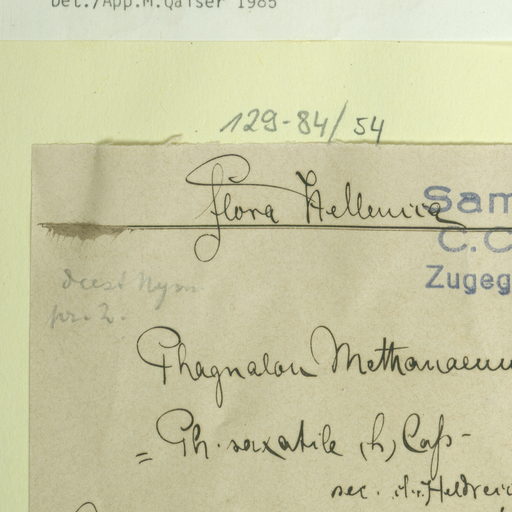 Det./App.M.Qaiser 1985
129-84/54
Flora Hellenica
Sam
C.C
Zugeg
deest Nym
pr. 2.
Phagnalon Methanaeum
= Ph. saxatile (L) Cass
sec. Heldreic